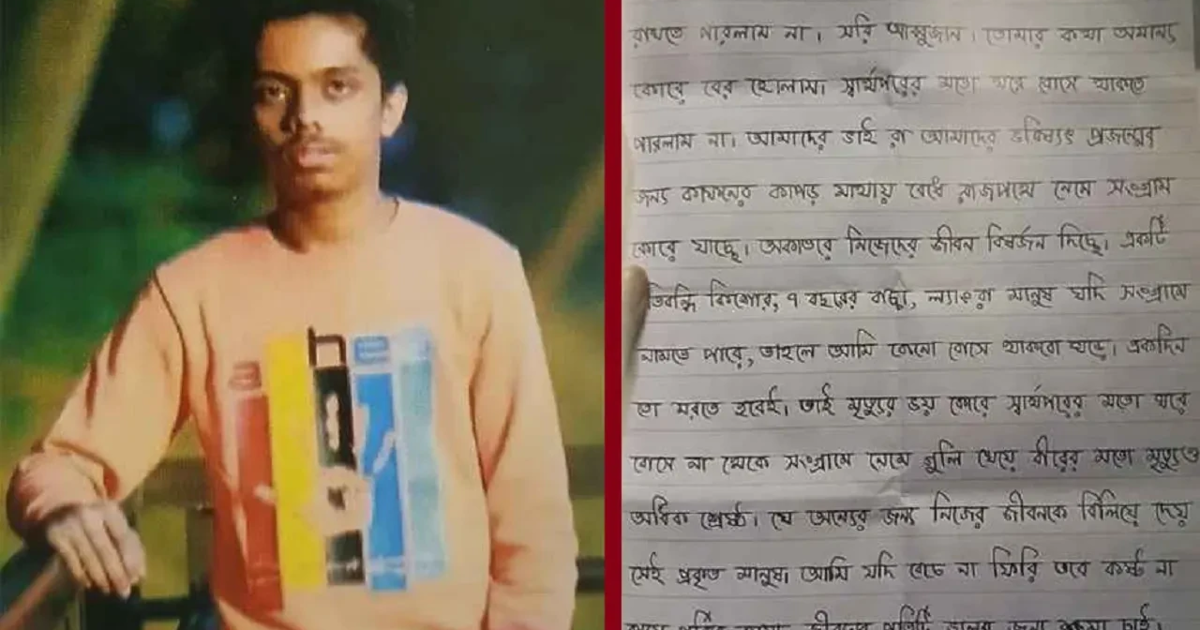 রাখতে পারলাম না। সরি আব্বুজান। তোমার কথা অমান্য
কোরে বের হোলাম। স্বার্থপরের মতো ঘরে বোসে থাকতে
পারলাম না। আমাদের ভাই রা আমাদের ভবিষ্যৎ প্রজন্মের
জন্য কাফনের কাপড় মাথায় বেধে রাজপথে নেমে সংগ্রাম
কোরে যাচ্ছে। অকাতরে নিজেদের জীবন বিষর্জন দিচ্ছে। একটি
তিবন্ধি কিশোর, ৭ বছরের বাচ্চা, ল্যাংরা মানুষ যদি সংগ্রামে
নামতে পারে, তাহলে আমি কেনো বোসে থাকবো ঘড়ে। একদিন
তো মরতে হবেই। তাই মৃত্যুর ভয় কোরে স্বার্থপরের মতো ঘরে
বোসে না থেকে সংগ্রামে নেমে গুলি খেয়ে বীরের মতো মৃত্যুতে
অধিক শ্রেষ্ঠ। যে অন্যের জন্য নিজের জীবনকে বিলিয়ে দেয়
সেই প্রকৃত মানুষ। আমি যদি বেচে না ফিরি তবে কষ্ট না
জীবনের প্রতিটি ভুলের জন্য ক্ষমা চাই।